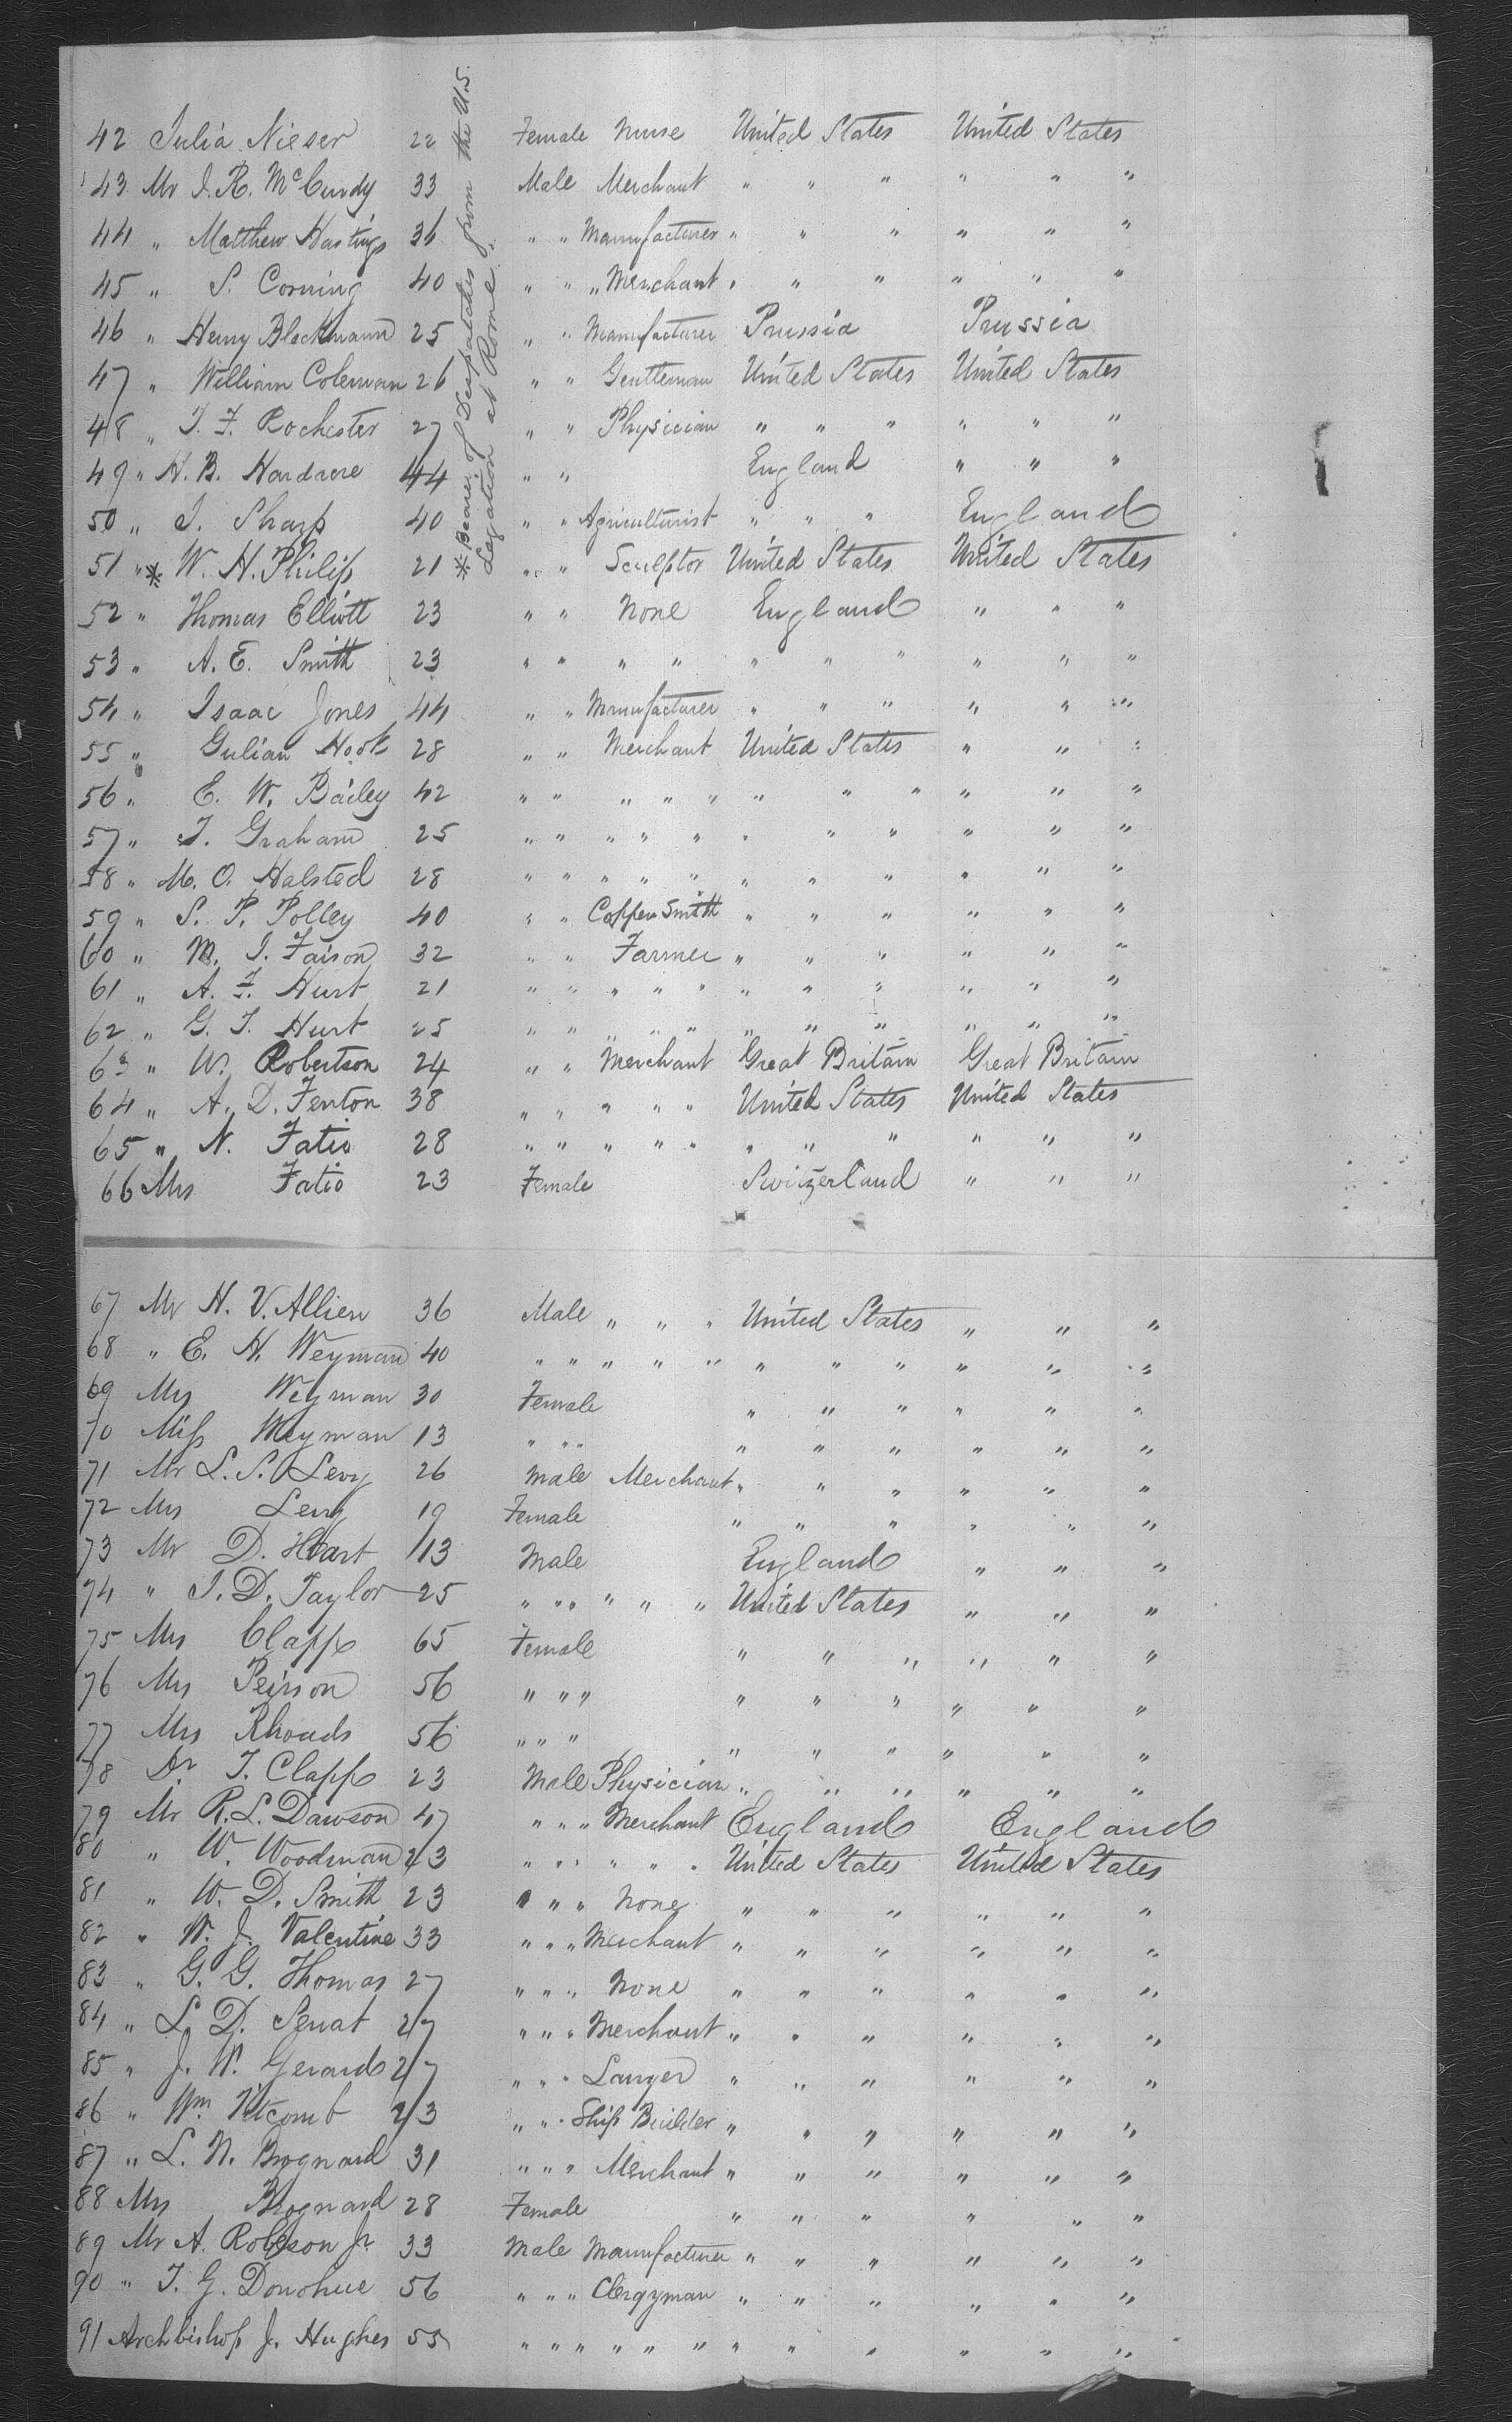 42 Julia Nieser 22 Female Nurse United States United States
43 Mr J. R. McCurdy 33 Male Merchant " " " " " "
44 " Matthew Hastings 36 " " Manufacturer " " " " " "
45 " S. Corning 40 " " " Merchant " " " " " "
46 " Henry Bleckmann 25 " " Manufacturer Prussia Prussia
47 " William Coleman 26 " " Gentleman United States United States
48 " T. F. Rochester 27 " " Physician " " " " " "
49 " H. B. 44 " " England " " "
50 " J. Sharp 40 " " Agriculturist " " " England
51 " * W. H. Philip 21 " " Sculptor United States United States
* Bearer of Despatches from the U.S.
Legation at Rome.
52 " Thomas Elliott 23 " " None England " " "
53 " A. E. Smith 23 " " " " " " " " " "
54 " Isaac Jones 44 " " Manufacturer " " " " " "
55 " Gulian Hook 28 " " Merchant United States " " "
56 " E. W. Bailey 42 " " " " " " " " " " "
57 " T. Graham 25 " " " " " " " " " " "
58 " M. O. Halsted 28 " " " " " " " " " " "
59 " S. P. Polley 40 " " Copper Smith " " " " " "
60 " M. J. Faison 32 " " Farmer " " " " " "
61 " A. F. Hurt 21 " " " " " " " " " " "
62 " G. T. Hurt 25 " " " " " " " " " " "
63 " W. Robertson 24 " " Merchant Great Britain Great Britain
64 " A. D. Fenton 38 " " " " " United States United States
65 " N. Fatio 28 " " " " " " " " " " "
66 Mrs Fatio 23 Female Switzerland " " "
67 Mr H. V. Allien 36 Male " " " United States " " "
68 " E. H. Weyman 40 " " " " " " " " " " "
69 Mrs Weyman 30 Female " " " " " "
70 Miss Weyman 13 " " " " " " " " "
71 Mr L. S. Levy 26 Male Merchant " " " " " "
72 Mrs Levy 19 Female " " " " " "
73 Mr D. Hart 13 Male England " " "
74 " J. D. Taylor 25 " " " " " " United States " " "
75 Mrs Clapp 65 Female " " " " " "
76 Mrs Peirson 56 " " " " " " " " "
77 Mrs Rhoads 56 " " " " " " " " "
78 Dr T. Clapp 23 Male Physician " " " " " "
79 Mr R. L. Dawson 47 " " " Merchant England England
80 " W. Woodman 23 " " " " " " United States United States
81 " W. D. Smith 23 " " " None " " " " " "
82 " W. J. Valentine 33 " " " Merchant " " " " " "
83 " G. G. Thomas 27 " " " None " " " " " "
84 " L. D. Senat 27 " " " Merchant " " " " " "
85 " J. W. Gerard 27 " " " Lawyer " " " " " "
86 " Wm Titcomb 23 " " " Ship Builder " " " " " "
87 " L. N. Brognard 31 " " " Merchant " " " " " "
88 Mrs Brognard 28 Female " " " " " "
89 Mr A. Robeson Jr 33 Male Manufacturer " " " " " "
90 " T. G. Donohue 56 " " " Clergyman " " " " " "
91 Archbishop J. Hughes 55 " " " " " " " " " " " "